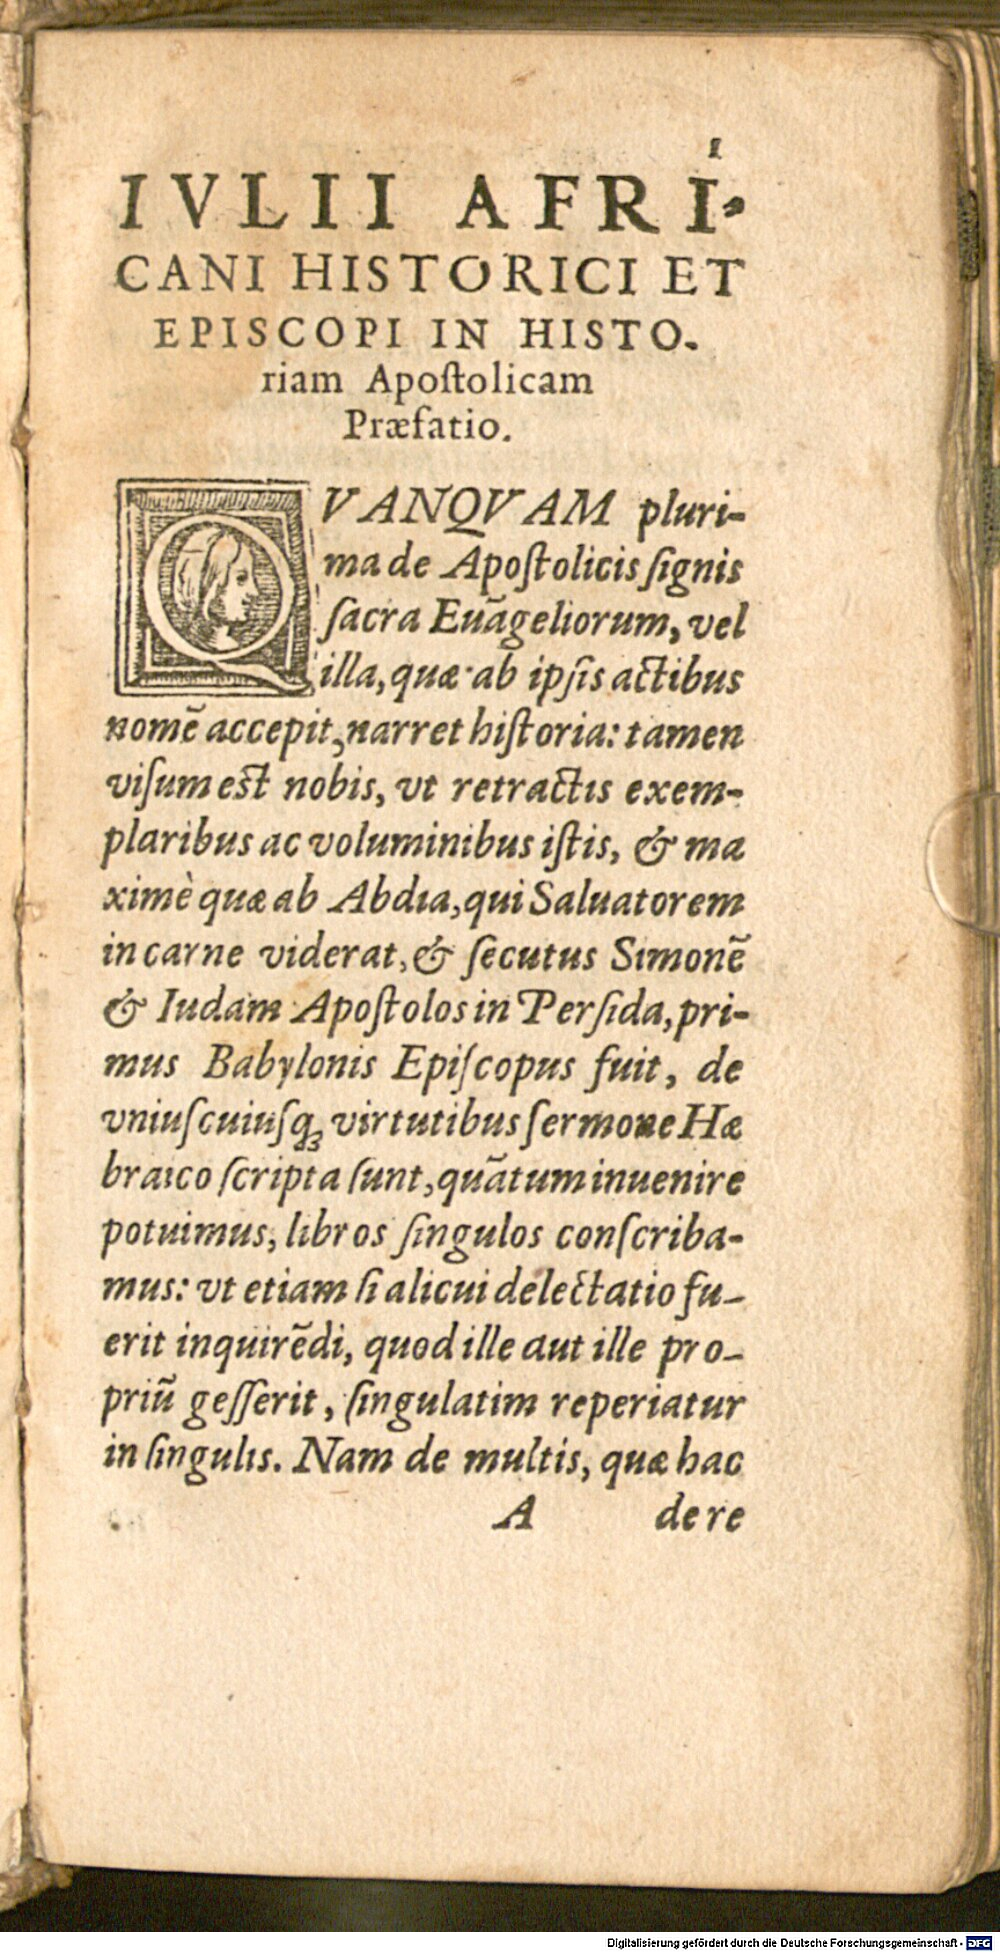 1
IVLII AFRI-
CANI HISTORICI ET
EPISCOPI IN HISTO-
riam Apoſtolicam
Præfatio.
QVANQVAM pluri-
ma de Apoſtolicis ſignis
ſacra Euãgeliorum, vel
illa, quæ ab ipſis actibus
nomẽ accepit, narret hiſtoria: tamen
viſum eſt nobis, vt retractis exem-
plaribus ac voluminibus iſtis, & ma
ximè quæ ab Abdia, qui Saluatorem
in carne viderat, & ſecutus Simonẽ
& Iudam Apoſtolos in Perſida, pri-
mus Babylonis Epiſcopus fuit, de
vniuſcuiuſq; virtutibus ſermone Hæ
braico ſcripta ſunt, quãtum inuenire
potuimus, libros ſingulos conſcriba-
mus: vt etiam ſi alicui delectatio fu-
erit inquirẽdi, quod ille aut ille pro-
priũ geſſerit, ſingulatim reperiatur
in ſingulis. Nam de multis, quæ hac
A dere
Digitalisierung gefördert durch die Deutsche Forschungsgemeinschaft - DFG